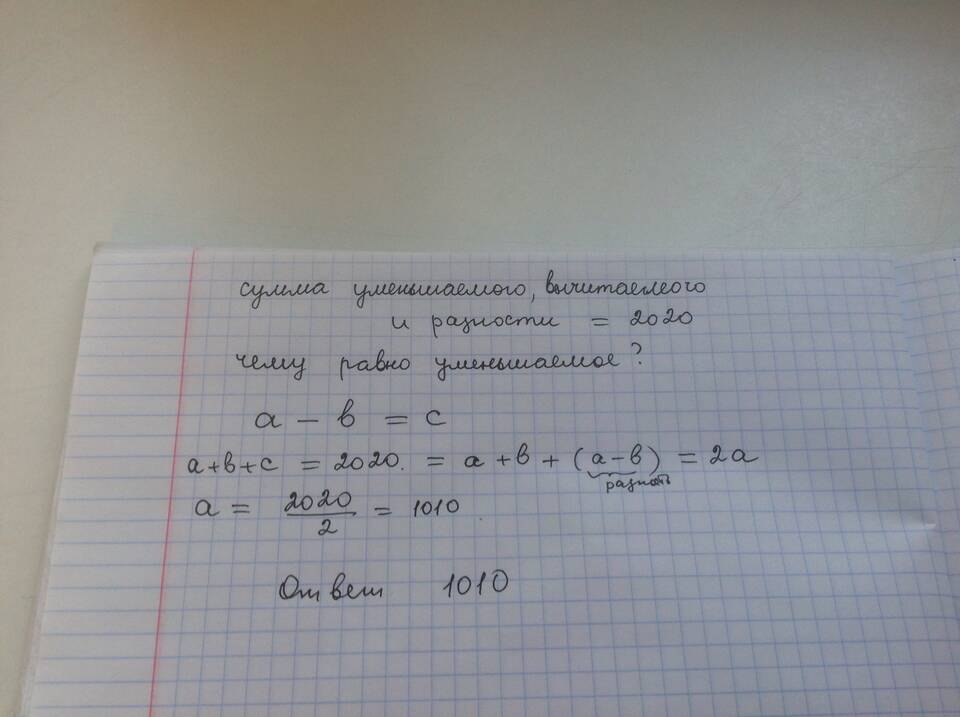 сумма уменьшаемого, вычитаемого
и разности = 2020
чему равно уменьшаемое?
a – в = c
a+в+c = 2020. = a+в+(a–в) = 2a
разность
a = 2020/2 = 1010
Ответ 1010